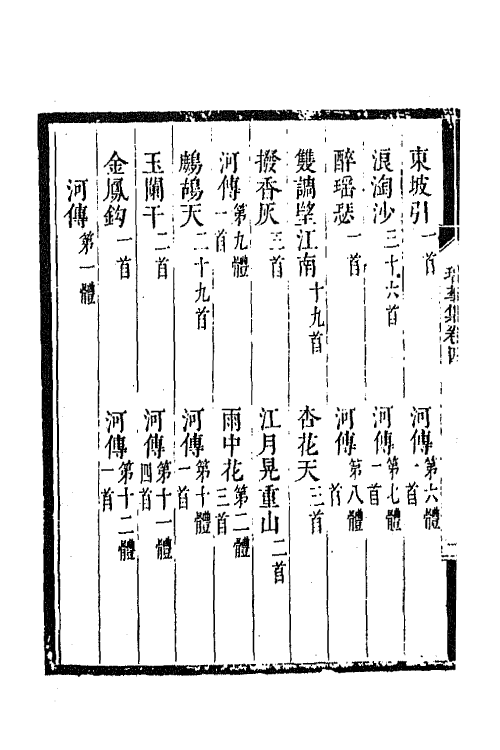 東坡引一首
河傳第六體一首
浪淘沙三十六首
河傳第七體一首
醉瑶瑟一首
河傳第八體一首
雙調望江南十九首
杏花天三首
撥香灰三首
江月晃重山二首
河傳第九體一首
雨中花第二體三首
鷓鴣天二十九首
河傳第十體一首
玉闌干二首
河傳第十一體四首
金鳳鈎一首
河傳第十二體一首
河傳第一體
卷四
二